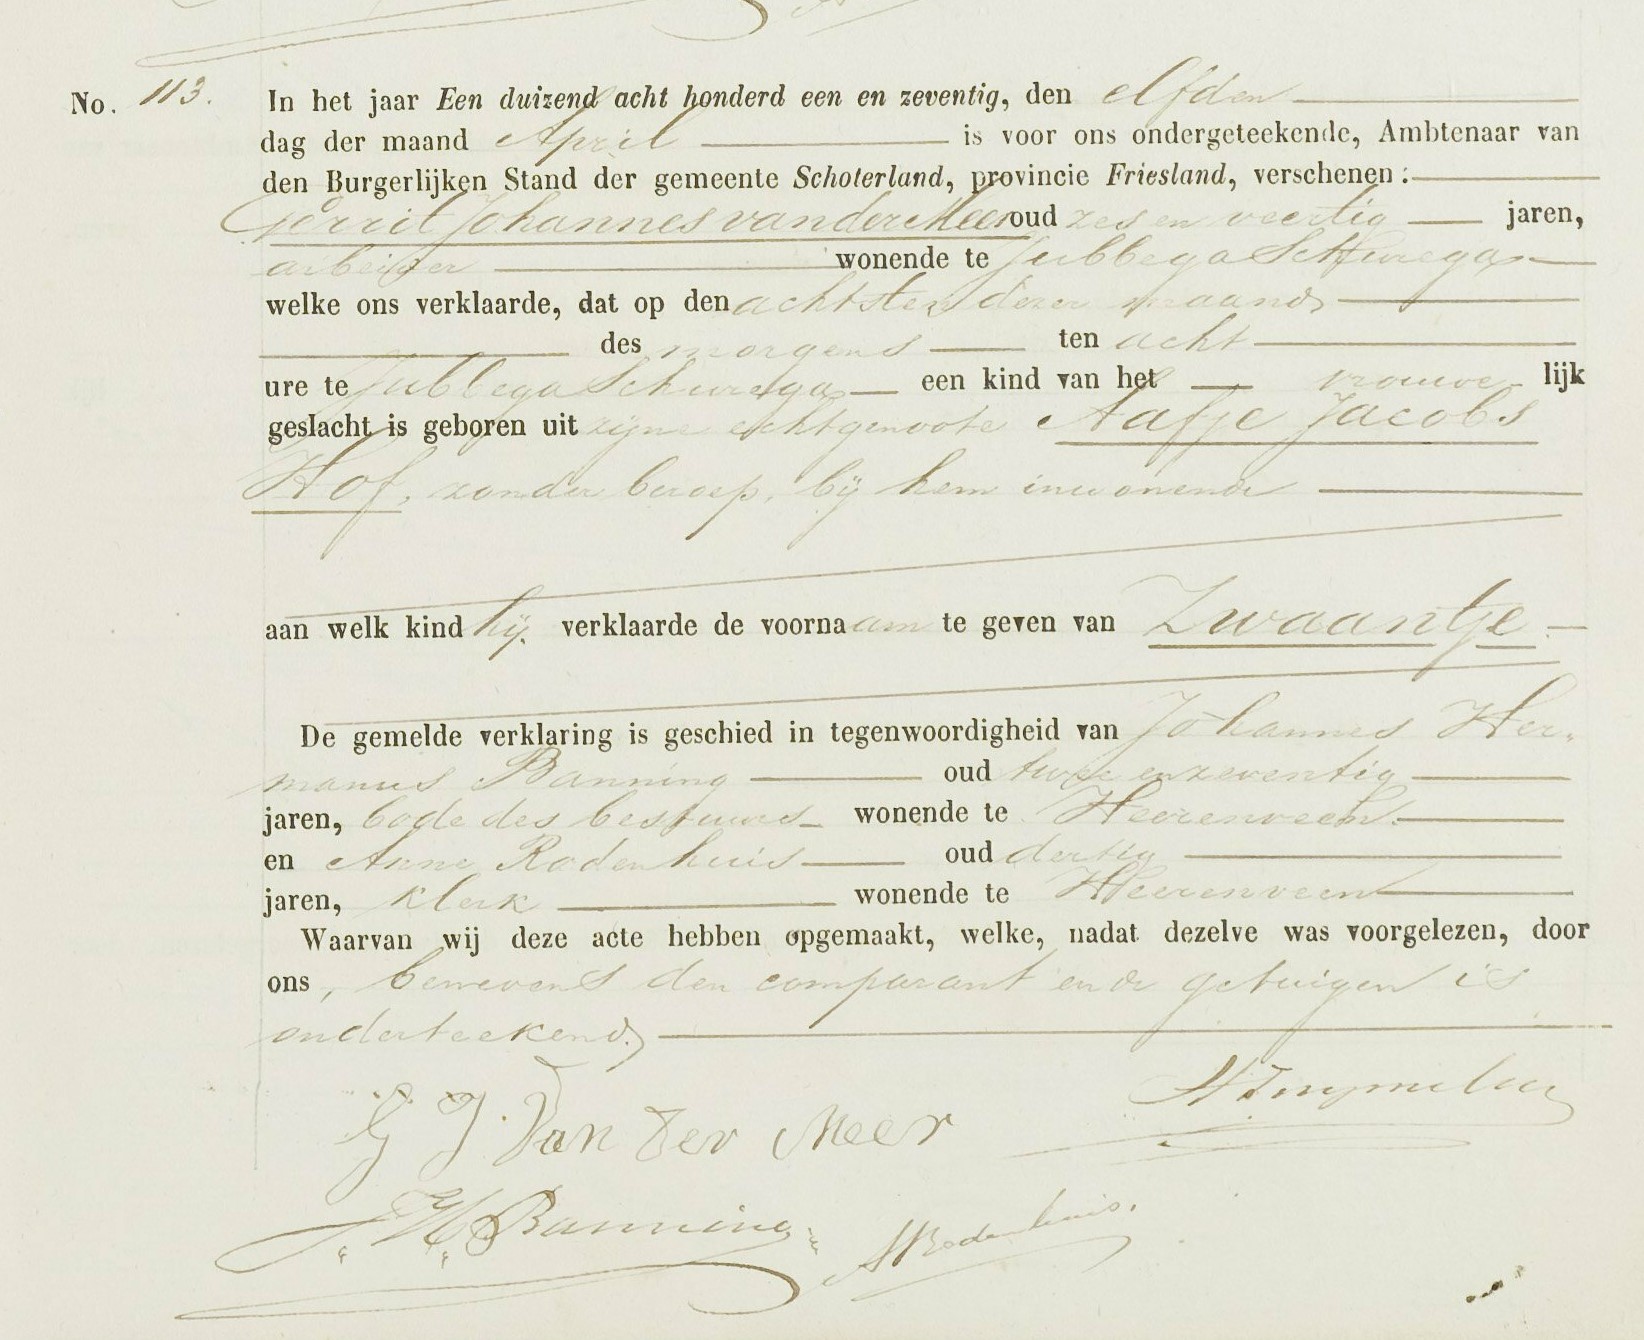 No. 113. In het jaar Een duizend acht honderd een en zeventig, den elfden
dag der maand April is voor ons ondergeteekende, Ambtenaar van
den Burgerlijken Stand der gemeente Schoterland, provincie Friesland, verschenen:
Gerrit Johannes van der Meer oud zes en veertig jaren,
arbeider wonende te Jubbega Schurega
welke ons verklaarde, dat op den achtsten dezer maand,
des morgens ten acht
ure te Jubbega Schurega een kind van het vrouwe lijk
geslacht is geboren uit zijne echtgenoote Aafje Jacobs
Hof, zonder beroep, bij hem inwonende
aan welk kind hij verklaarde de voornaam te geven van Zwaantje
De gemelde verklaring is geschied in tegenwoordigheid van Johannes Her-
manus Banning oud twee en zeventig
jaren, bode des bestuurs wonende te Heerenveen
en Anne Rodenhuis oud dertig
jaren, klerk wonende te Heerenveen
Waarvan wij deze acte hebben opgemaakt, welke, nadat dezelve was voorgelezen, door
ons, benevens den comparant en de getuigen is
onderteekend.
G J Van der Meer
J. H. Banning ARodenhuis.